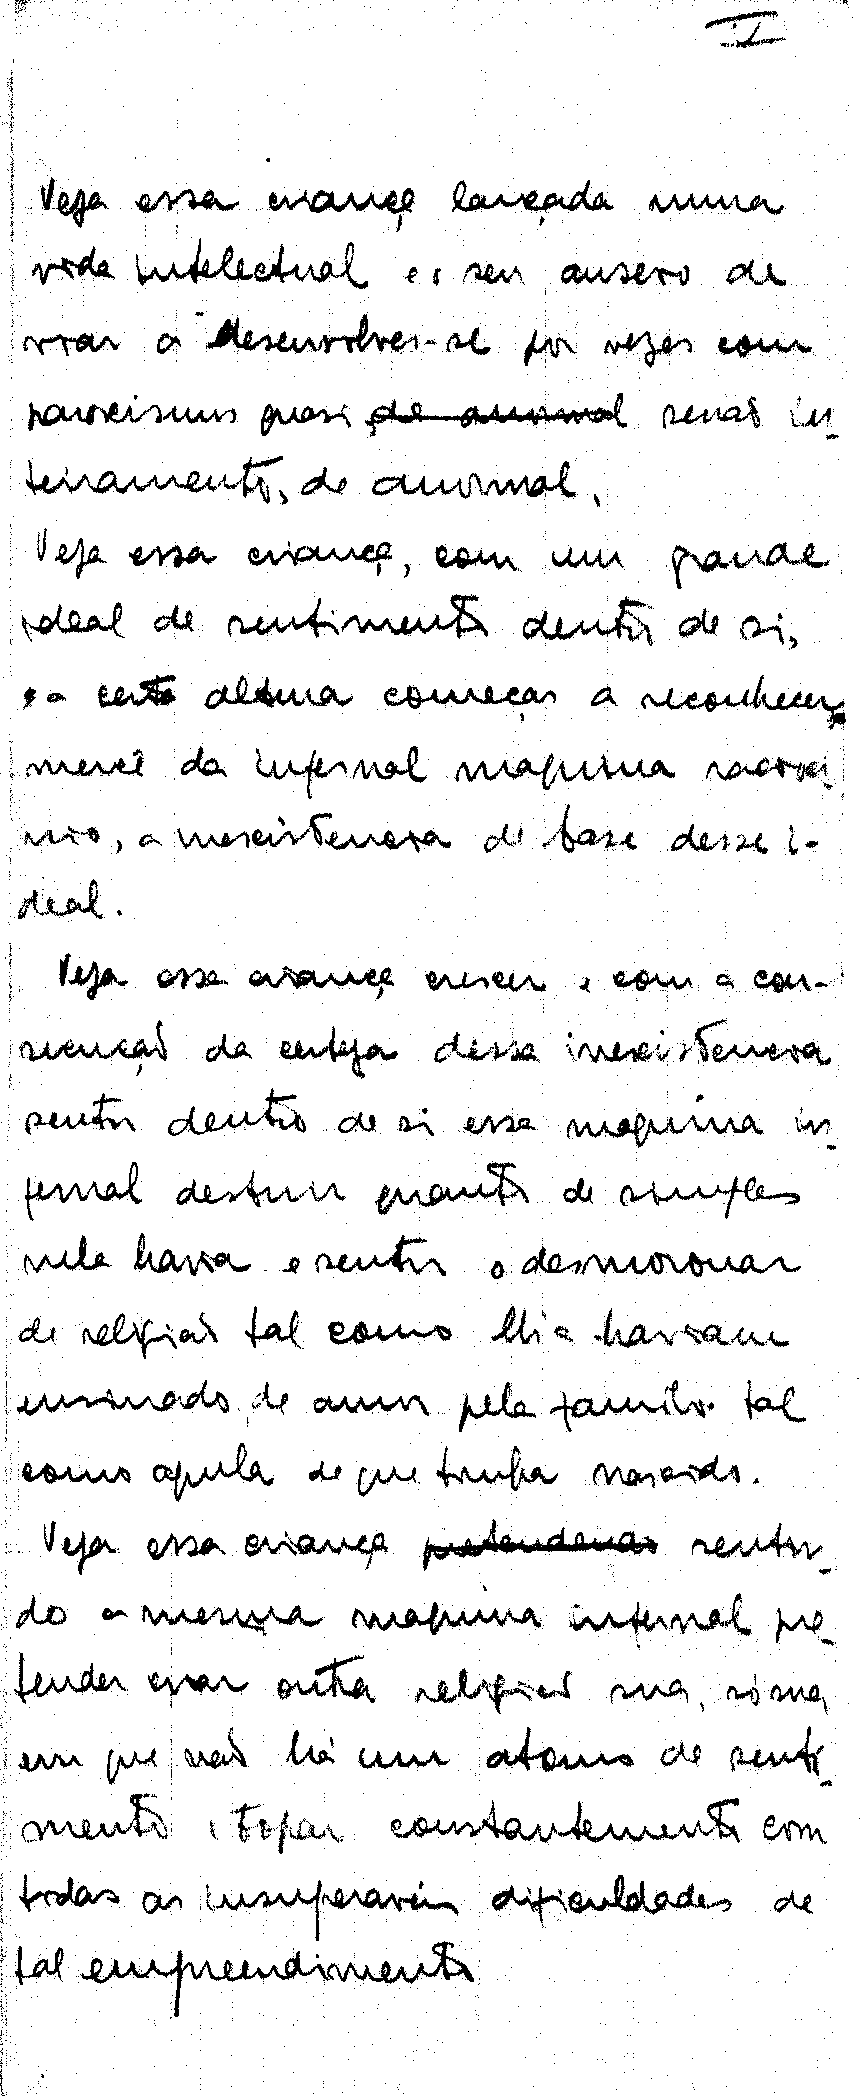 I
Veja essa criança lançada numa
vida intelectual e o seu anseio de
criar a desenvolver-se por vezes com
paroxismos quasi de anormal senão in-
teiramente, de anormal.
Veja essa criança, com um grande
ideal de sentimento dentro de si,
e a certa altura começar a reconhecer,
mercê da infernal maquina racioci-
nio, a inexistencia de base desse i-
deal.
Veja essa criança crescer e com a con-
secução da certeza dessa inexistencia
sentir dentro de si essa maquina in-
fernal destruir quanto de simples
nela havia e sentir o desmoronar
de religião tal como lhe haviam
ensinado, de amor pela familia tal
como aquela de que tinha nascido.
Veja essa criança pretendendo sentin-
do a mesma maquina infernal pre-
tender criar outra religião sua, só sua,
em que não há um atomo de senti-
mento e topar constantemente com
todas as insuperaveis dificuldades de
tal empreendimento